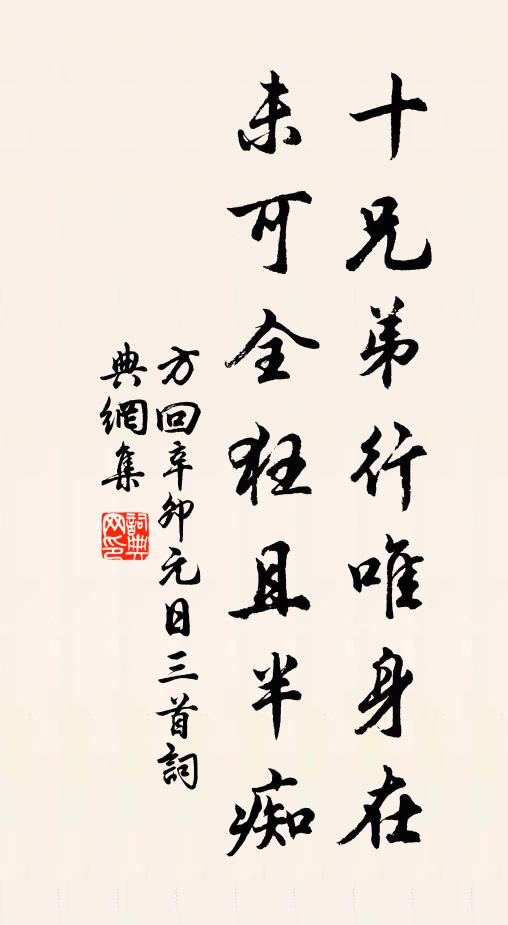 十兄弟行唯身在
未可全狂且半痴
方回辛卯元日三首詞
典網集
詞典網印